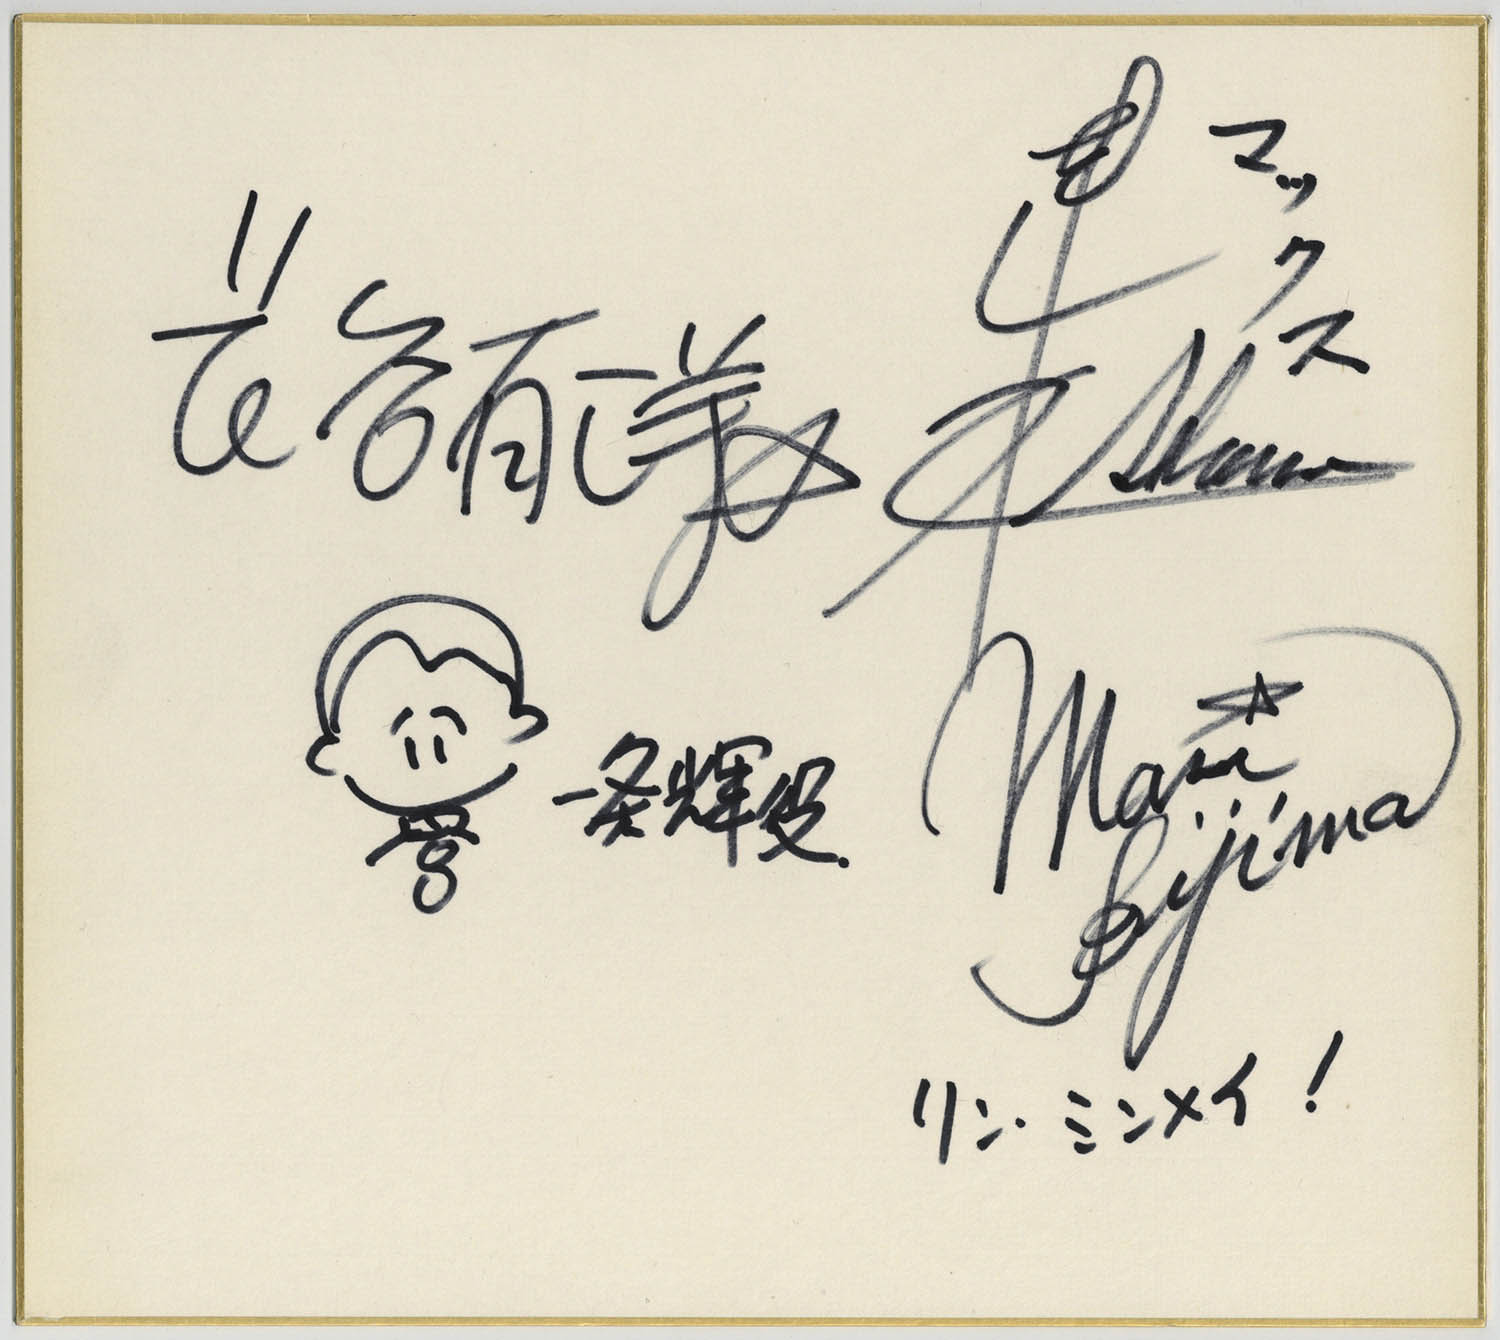 マックス
長谷有洋
一条輝役.
Mari Iijima
リン・ミンメイ!